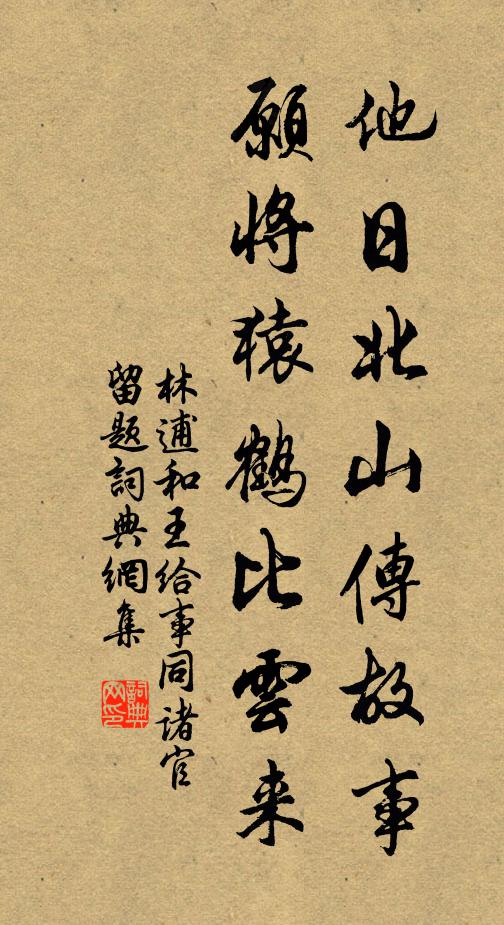 他日北山傳故事
願將猿鶴比雲来
林逋和王給事同諸官
留題詞典網集
詞典网印